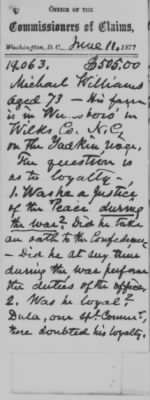 OFFICE OF THE
Commissioners of Claims,
Washington, D. C., June 11, 1877
19,063. $505.00
Michael Williams
aged 73 – His farm
is in
Wilks Co. N.C.
on the Yadkin
The question is
as to loyalty –
1. Was he a Justice
of the Peace during
the war? Did he take
an oath to the Confederacy
– Did he at any time
during the war perform
the duties of the office,
2. Was he loyal?
Dula, one spl. Commr,
there doubted his loyalty.